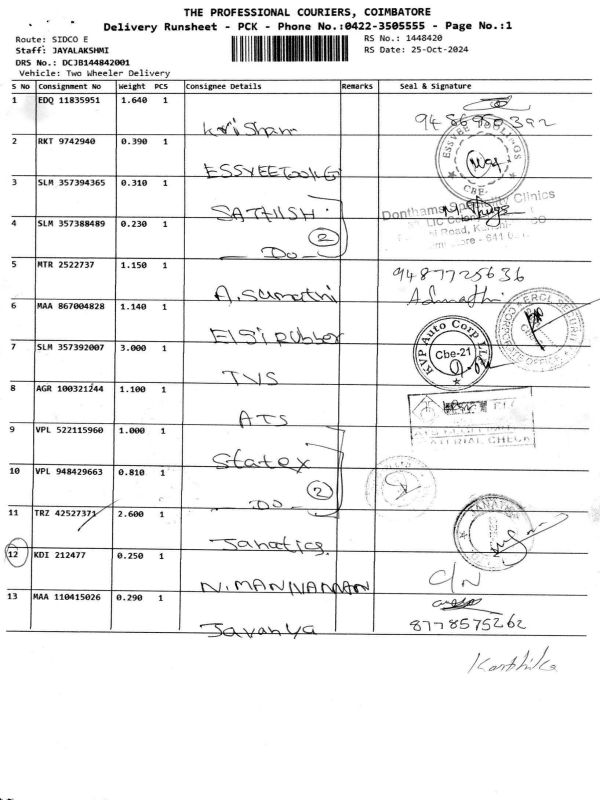 THE PROFESSIONAL COURIERS, COIMBATORE
Delivery Runsheet - PCK - Phone No.:0422-3505555 - Page No.:1
Route: SIDCO E RS No.: 1448420
Staff: JAYALAKSHMI RS Date: 25-Oct-2024
DRS No.: DCJB144842001
Vehicle: Two Wheeler Delivery
S No Consignment No Weight PCS Consignee Details Remarks Seal & Signature
1 EDQ 11835951 1.640 1
2 RKT 9742940 0.390 1 ESSVEE TOOLINGS
3 SLM 357394365 0.310 1 SATHISH Clinics
4 SLM 357388489 0.230 1 Do 2
5 MTR 2522737 1.150 1 A. Sumathi 9487725636
6 MAA 867004828 1.140 1
7 SLM 357392007 3.000 1 TVS KVP Auto Corp LLP Cbe-21
8 AGR 100321244 1.100 1 ATS MATERIAL CHECK
9 VPL 522115960 1.000 1 Statex
10 VPL 948429663 0.810 1 Do 2
11 TRZ 42527371 2.600 1 Janatics
12 KDI 212477 0.250 1 N. MANNAMAN C/N
13 MAA 110415026 0.290 1 8778575262
Karthika